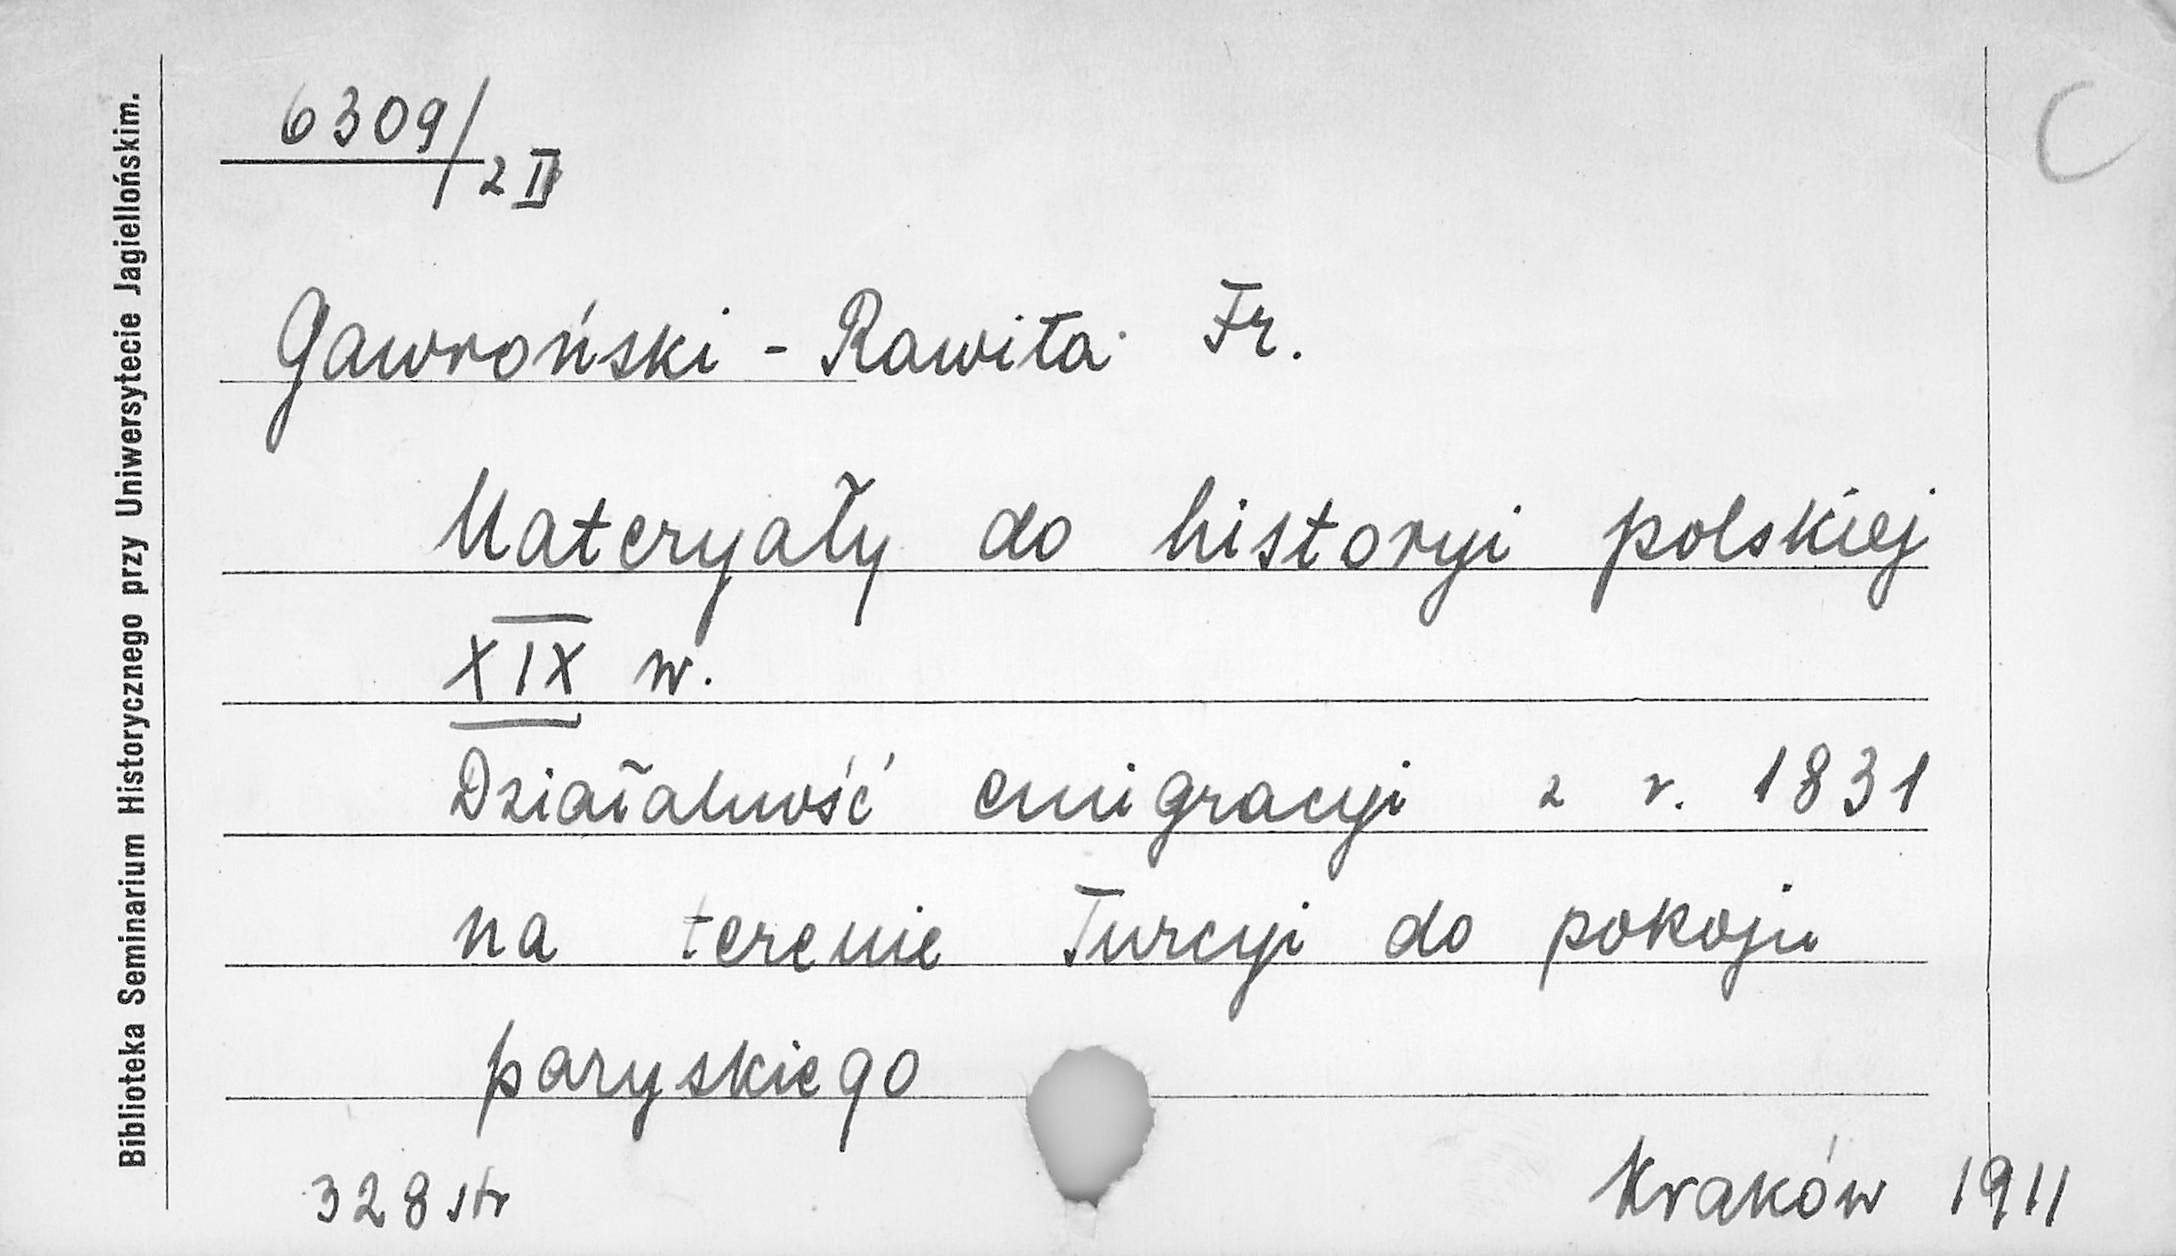 Biblioteka Seminarium Historycznego przy Uniwersytecie Jagiellońskim.
C
6309/2 II
Gawroński - Rawita Fr.
Materyały do historyi polskiej
XIX w.
Działalność emigracyi z r. 1831
na terenie Turcyi do pokoju
paryskiego
328 str
Kraków 1911